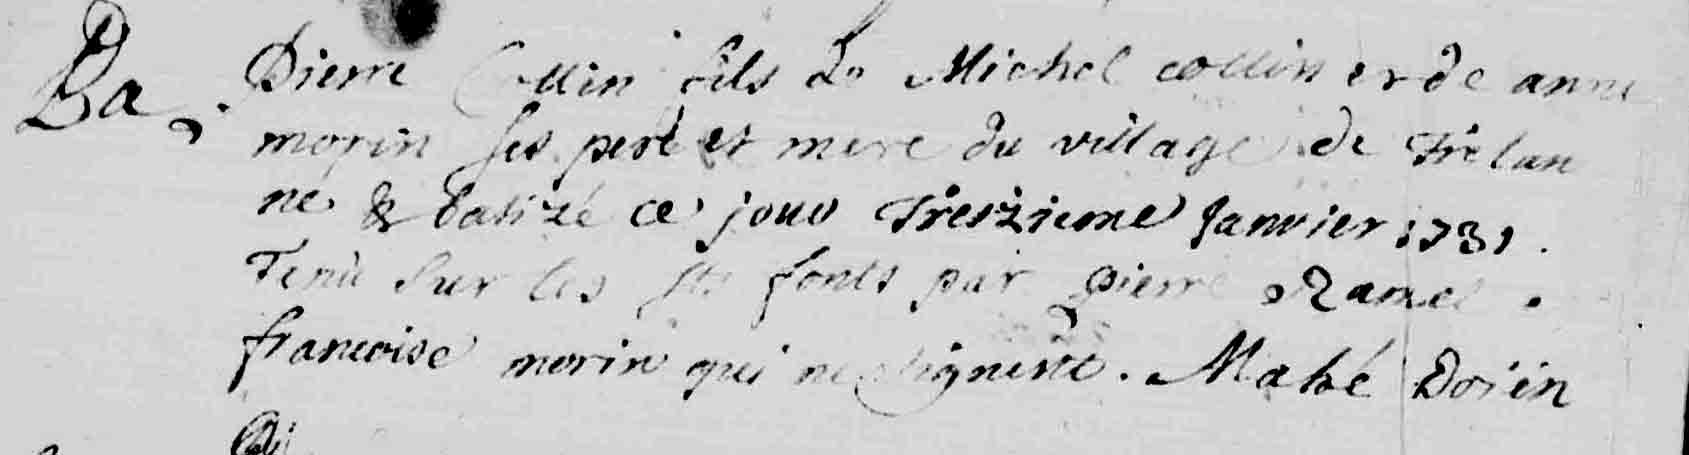 Ba. Pierre Collin fils de Michel collin et de anne
morin ses pere et mere du village de Trelan
né & batizé ce jour Treizieme Janvier 1731.
Tenu sur les sts fonts par pierre
francoise morin qui ne signent. Mahé